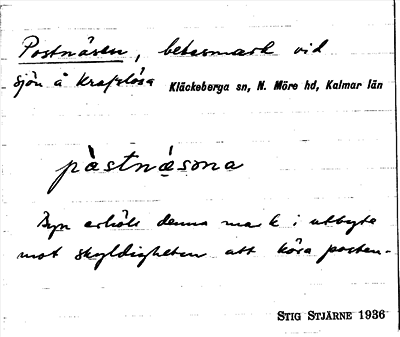 Postnäsen, betesmark vid
sjön å Krafslösa Kläckeberga sn, N. Möre hd, Kalmar län
pàstnä́sona
Byn erhöll denna mark i utbyte
mot skyldigheten att köra posten.
STIG STJÄRNE 1936